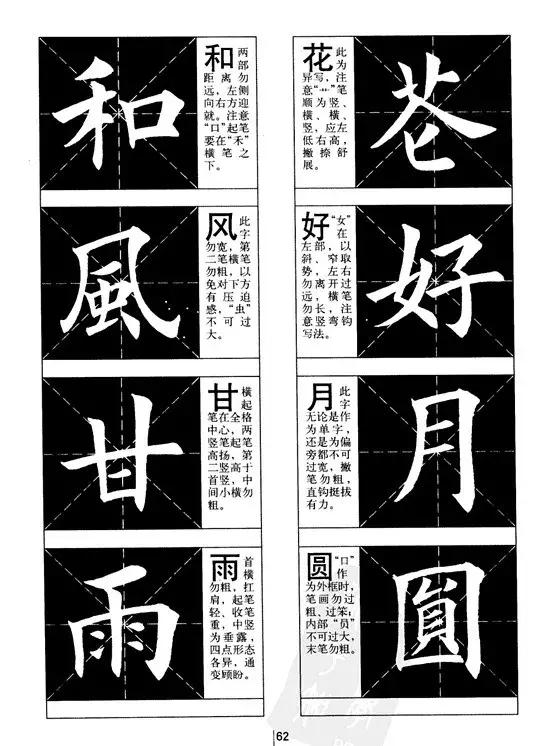 和
和 两
部
距离勿
远，左侧
向右方迎
就。注意
“口”起笔
要在“禾”
横笔之
下。
風
风 此
字
勿宽，第
二笔横笔
勿粗，以
免对下方
有压迫
感，“虫”
不可过
大。
甘
甘 横
起
笔在全格
中心，两
竖笔起笔
高扬，第
二竖高于
首竖，中
间小横勿
粗。
雨
雨 首
横
勿粗，扛
肩，起笔
轻、收笔
重，中竖
为垂露，
四点形态
各异，通
变顾盼。
花 此
为
异写，注
意“艹”笔
顺为竖、
横、横、
竖，应左
低右高，
撇捺舒
展。
花
好 “女”
在
左部，以
斜、窄取
势，左右
勿离开过
远，横笔
勿长，注
意竖弯钩
写法。
好
月 此
字
无论是作
为单字，
还是为偏
旁都不可
过宽，撇
笔勿粗，
直钩挺拔
有力。
月
圆 “口”
作
为外框时，
笔画勿过
粗、过笨；
内部“员”
不可过大，
末笔勿粗。
圓
62